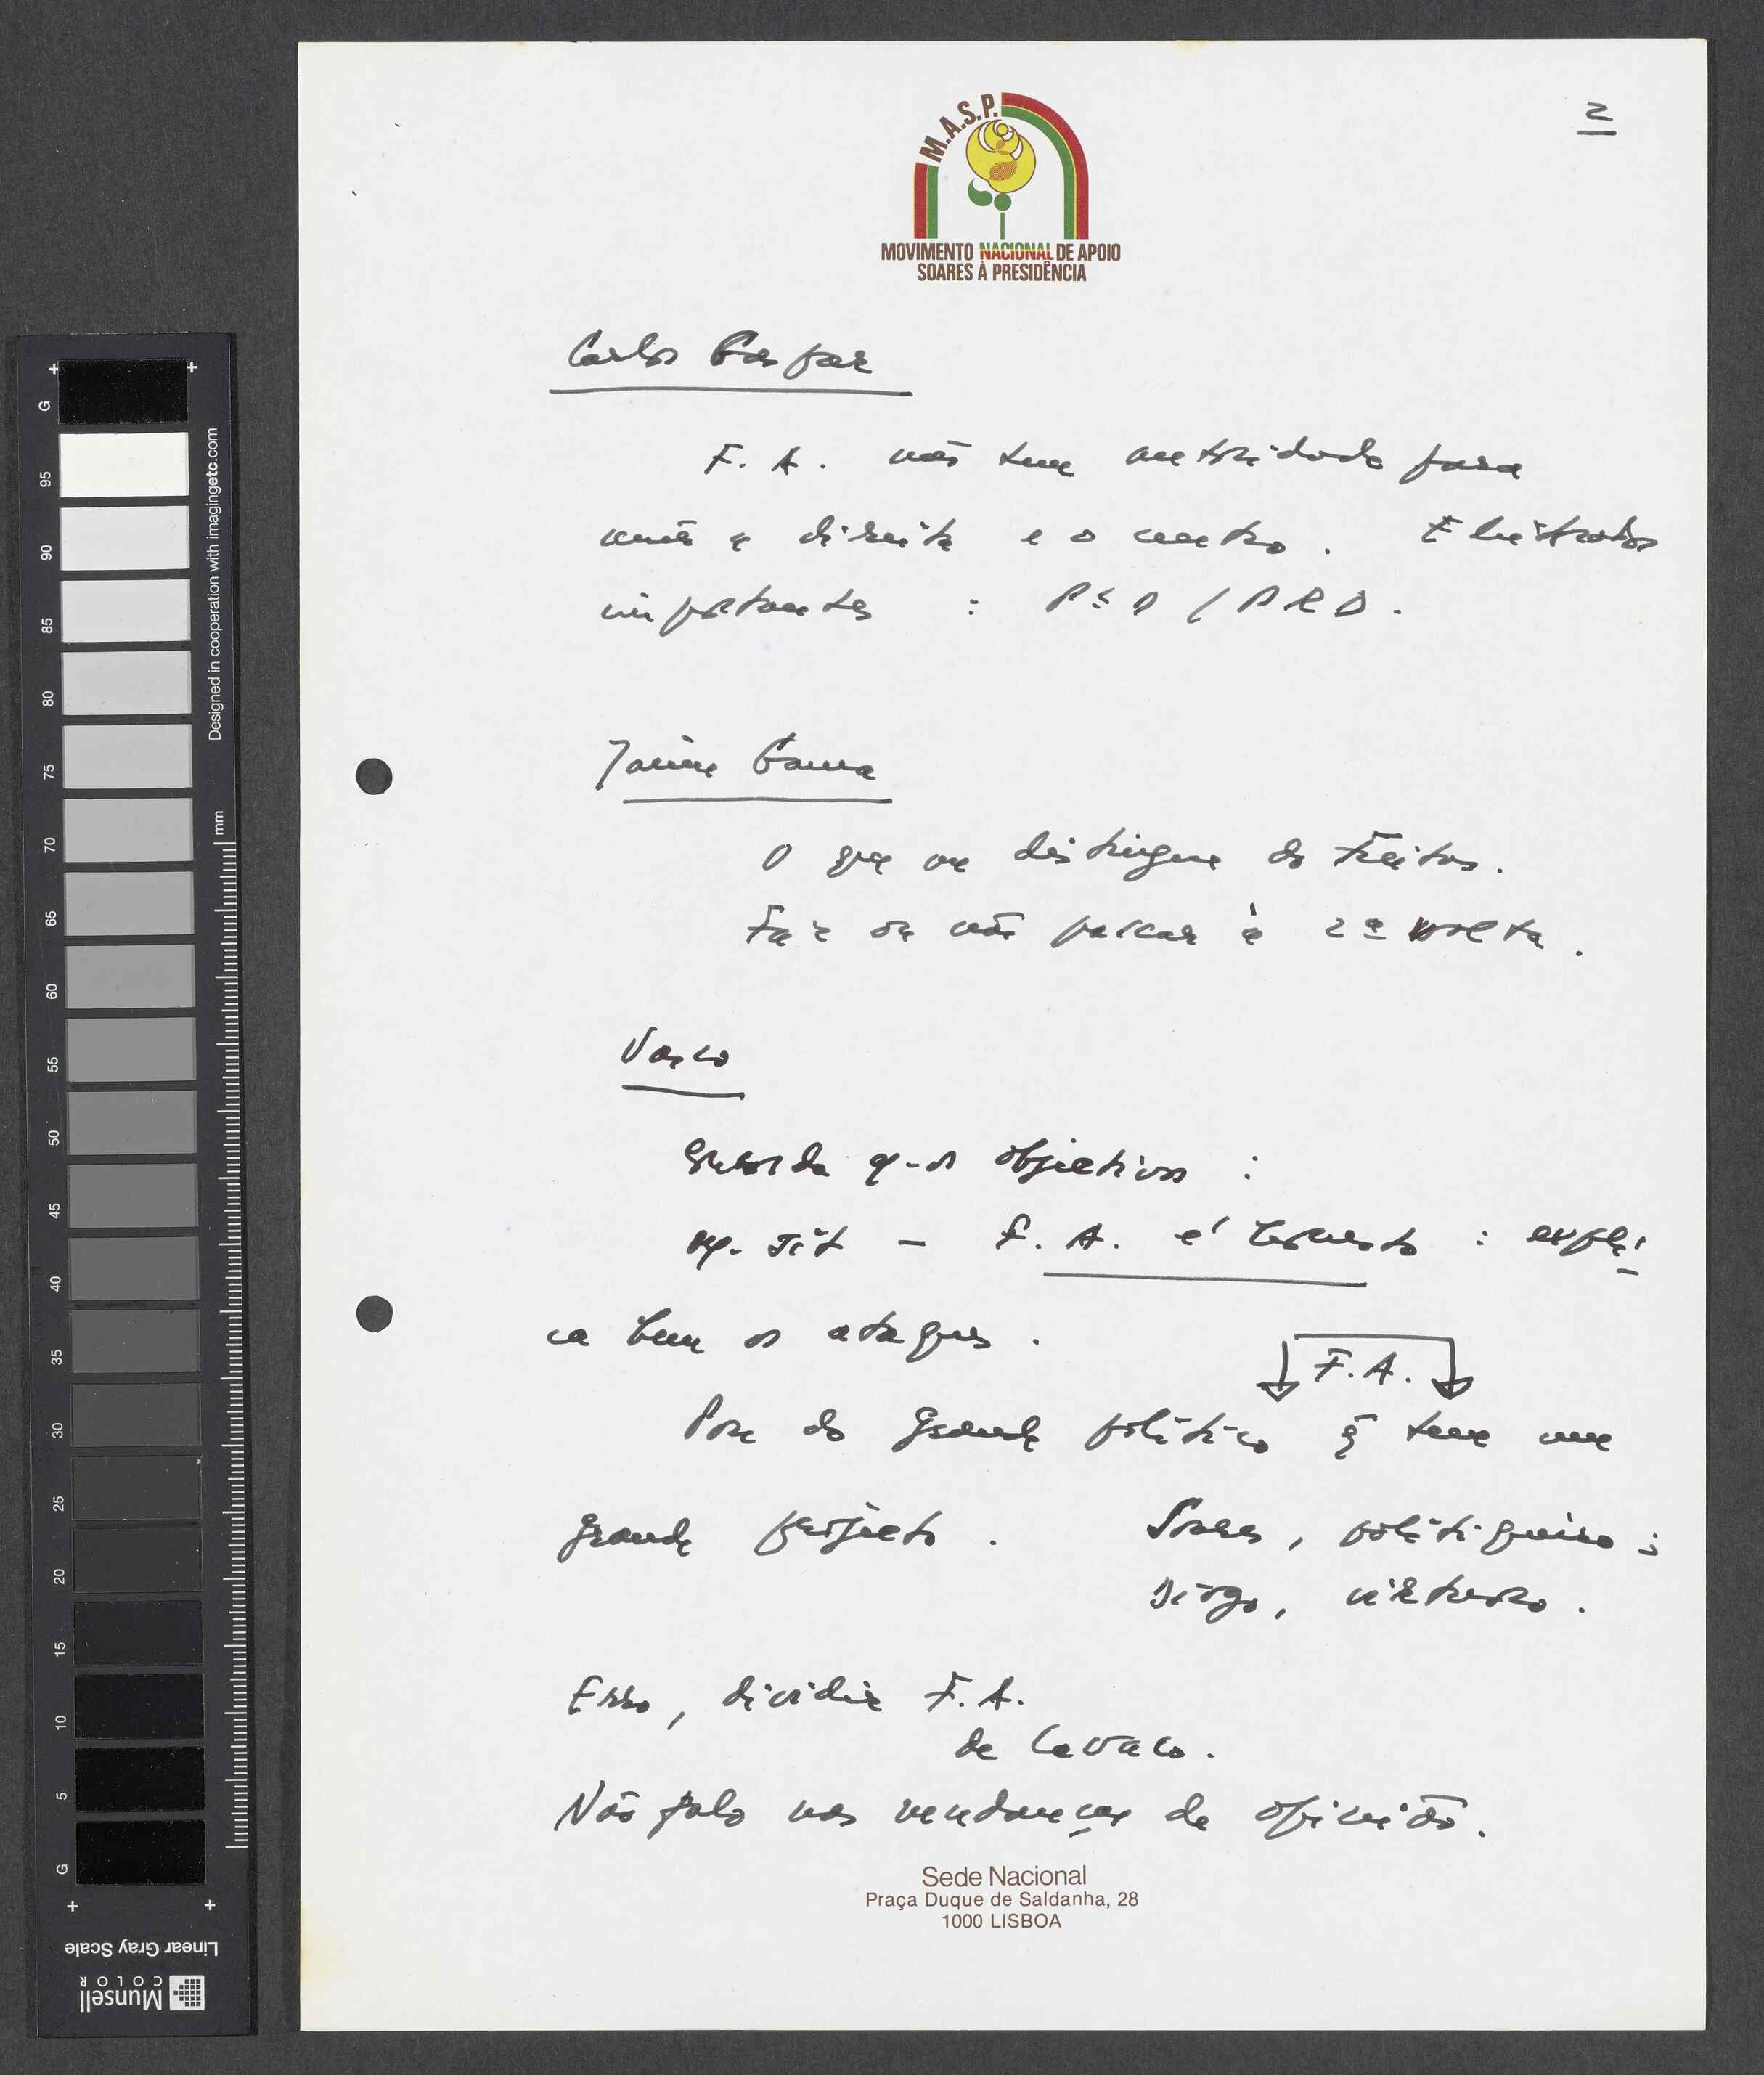 2
M.A.S.P.
MOVIMENTO NACIONAL DE APOIO
SOARES À PRESIDÊNCIA
Carlos Gaspar
F. A. não tem autoridade para
unir a direita e o centro. Eleitorados
importantes : PSD / PRD.
Jaime Gama
O que me distingue do Freitas.
Faz ou não passar à 2ª volta.
Vasco
Concorda q-os objectivos :
F. A. é : expli
ca bem os ataques.
F.A.
Pose do grande político q̃ tem um
grande projecto. Soares, politiqueiro ;
Diogo, virtuoso.
Erro, dividir F.A.
de Cavaco.
Não falo nas mudanças de opinião.
Sede Nacional
Praça Duque de Saldanha, 28
1000 LISBOA
G
95
90
85
80
75
70
65
60
55
50
45
40
35
30
25
20
15
10
5
G
mm
Designed in cooperation with imagingetc.com
Linear Gray Scale
Munsell
COLOR